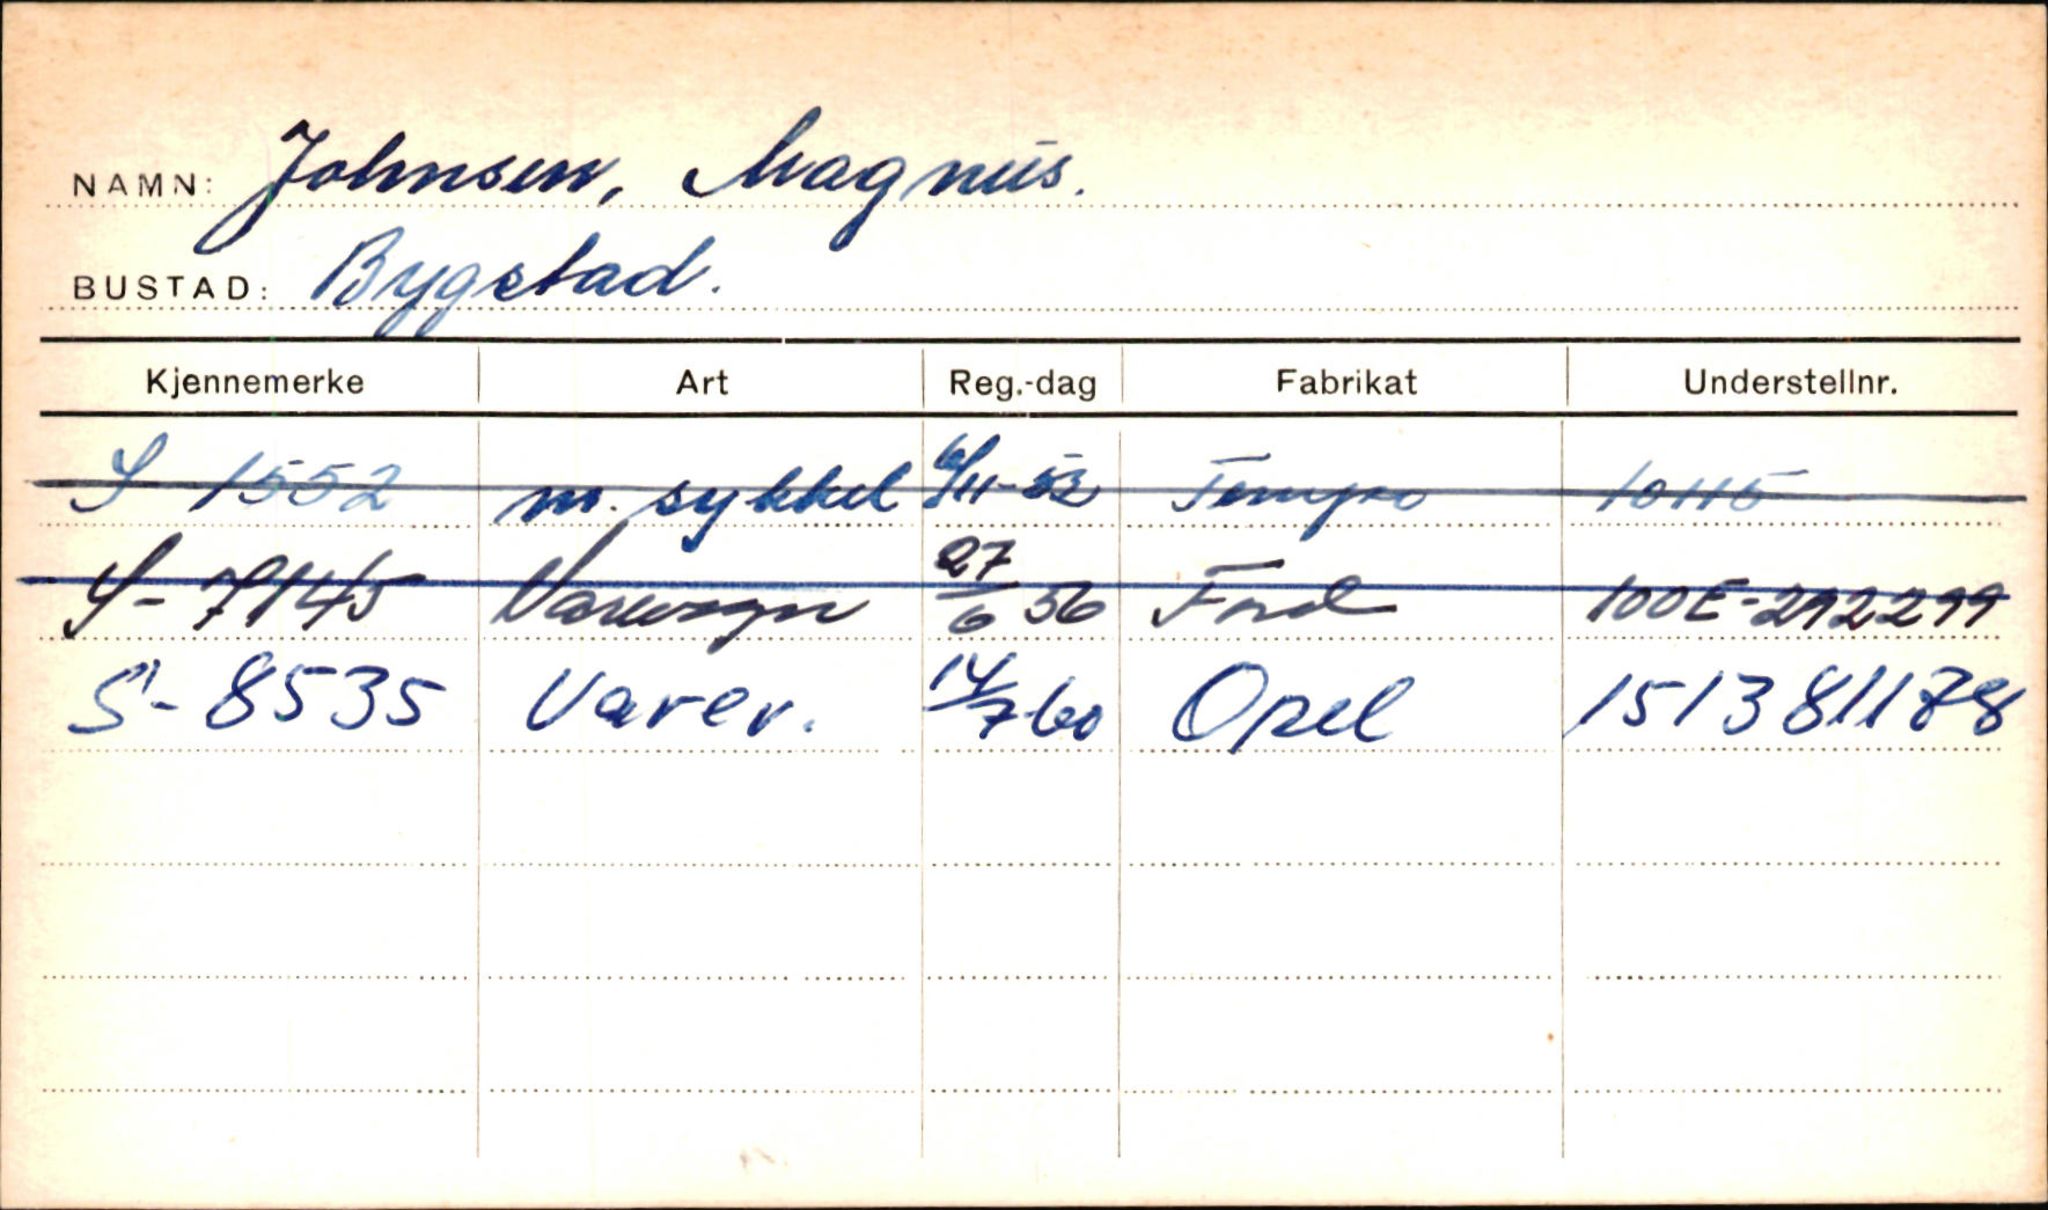 NAMN: Johnsen, Magnus.
BUSTAD: Bygstad.
Kjennemerke Art Reg.-dag Fabrikat Understellnr.
S 1552 m. sykkel 6/11-52 Tempo 10115
S- 7145 Varevogn 27/6 56 Ford 100E-292299
S- 8535 Varev. 14/7 60 Opel 151381178